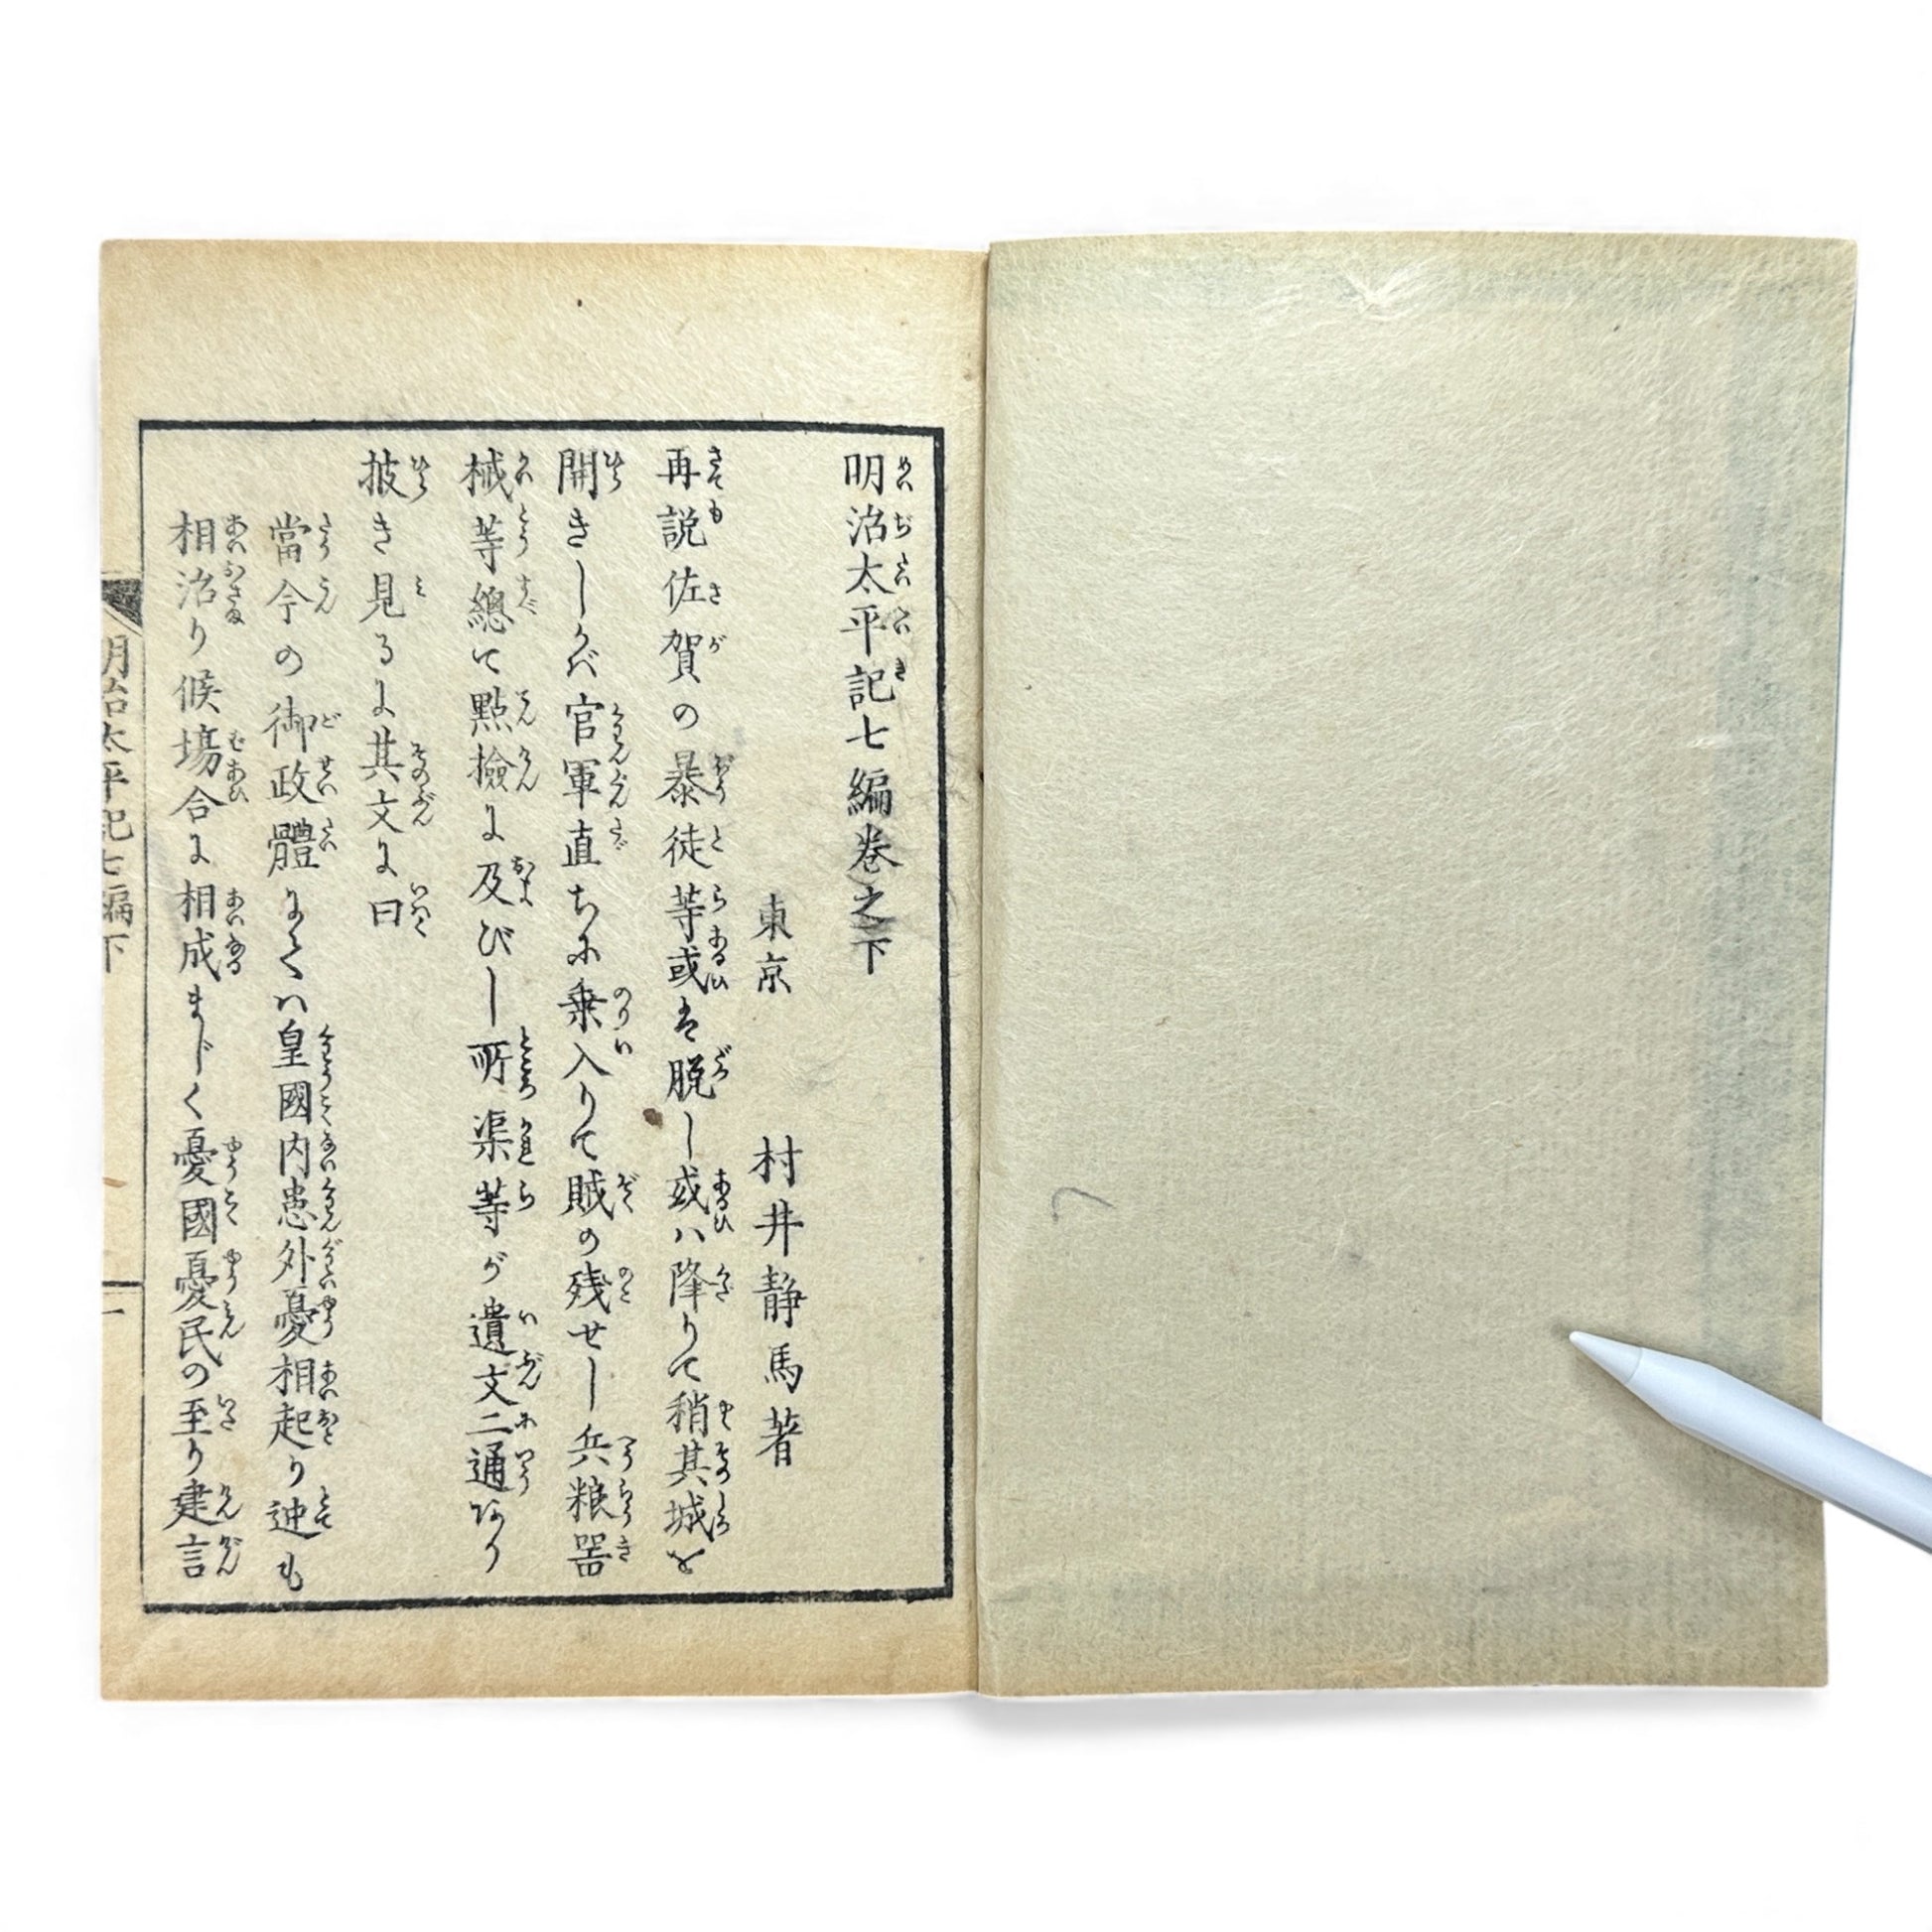 明治太平記七編巻之下
東京 村井静馬著
再説佐賀の暴徒等或は脱し或ハ降りて稍其城を
開きしかバ官軍直ちに乗入りて賊の残せし兵粮器
械等總て點撿に及びし所渠等が遺文二通あり
披き見るに其文に曰
當今の御政體にてハ皇國内患外憂相起り迚も
相治り候塲合に相成まじく憂國憂民の至り建言
明治太平記七編下
一